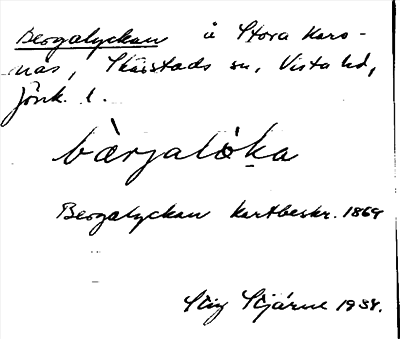 Bergalyckan å Stora Kors-
näs, Skärstads sn, Vista hd,
Jönk. l.
bàrjalø̀ka
Bergalyckan kartbeskr. 1869
Stig Stjärne 1938.